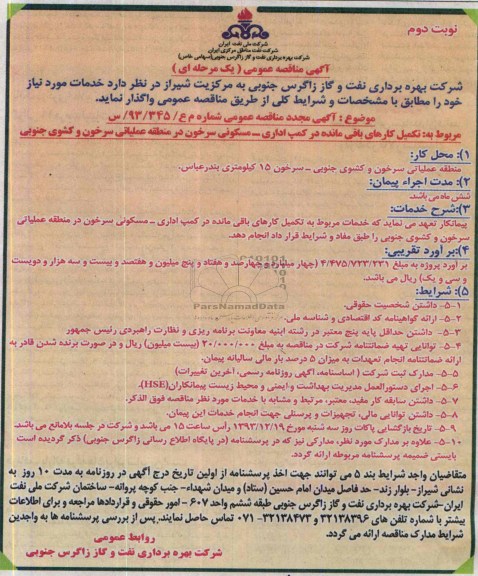 نوبت دوم
شرکت ملی نفت ایران
شرکت نفت مناطق مرکزی ایران
شرکت بهره برداری نفت و گاز زاگرس جنوبی(سهامی خاص)
آگهی مناقصه عمومی ( یک مرحله ای )
شرکت بهره برداری نفت و گاز زاگرس جنوبی به مرکزیت شیراز در نظر دارد خدمات مورد نیاز
خود را مطابق با مشخصات و شرایط کلی از طریق مناقصه عمومی واگذار نماید.
موضوع : آگهی مجدد مناقصه عمومی شماره م ع/ ۹۳/۳۴۵/ س
مربوط به: تکمیل کارهای باقی مانده در کمپ اداری ــ مسکونی سرخون در منطقه عملیاتی سرخون و گشوی جنوبی
۱): محل کار:
منطقه عملیاتی سرخون و گشوی جنوبی ــ سرخون ۱۵ کیلومتری بندرعباس.
۲): مدت اجراء پیمان:
شش ماه می باشد.
۳):شرح خدمات:
پیمانکار تعهد می نماید که خدمات مربوط به تکمیل کارهای باقی مانده در کمپ اداری ــ مسکونی سرخون در منطقه عملیاتی
سرخون و گشوی جنوبی را طبق مفاد و شرایط قرار داد انجام دهد.
۴):بر آورد تقریبی:
بر آورد پروژه به مبلغ ۴/۴۷۵/۷۲۳/۲۳۱ (چهار میلیارد و چهارصد و هفتاد و پنج میلیون و هفتصد و بیست و سه هزار و دویست
و سی و یک) ریال می باشد.
ParsNamadData
۵): شرایط:
۱-۵- داشتن شخصیت حقوقی.
۲-۵- ارائه گواهینامه کد اقتصادی و شناسه ملی.
۳-۵- داشتن حداقل پایه پنج معتبر در رشته ابنیه معاونت برنامه ریزی و نظارت راهبردی رئیس جمهور
۴-۵- توانایی تهیه ضمانتنامه شرکت در مناقصه به مبلغ ۲۰/۰۰۰/۰۰۰ (بیست میلیون) ریال و در صورت برنده شدن قادر به
ارائه ضمانتنامه انجام تعهدات به میزان ۵ درصد بار مالی سالیانه پیمان.
۵-۵- مدارک ثبت شرکت ( اساسنامه، آگهی روزنامه رسمی، آخرین تغییرات)
۶-۵- اجرای دستورالعمل مدیریت بهداشت و ایمنی و محیط زیست پیمانکاران(HSE).
۷-۵- داشتن سابقه کار مفید، معتبر، مرتبط و مشابه با خدمات مورد نظر مناقصه فوق الذکر.
۸-۵- داشتن توانایی مالی، تجهیزات و پرسنلی جهت انجام خدمات این پیمان.
۹-۵- تاریخ بازگشایی پاکات روز سه شنبه مورخ ۱۳۹۳/۱۲/۱۹ رأس ساعت ۱۵ می باشد و شرکت در جلسه بلامانع می باشد.
۱۰-۵- علاوه بر مدارک مورد نظر، مدارکی نیز که در پرسشنامه (در پایگاه اطلاع رسانی زاگرس جنوبی) ذکر گردیده است
بایستی ضمیمه پرسشنامه مربوطه ارائه گردد.
متقاضیان واجد شرایط بند ۵ می توانند جهت اخذ پرسشنامه از اولین تاریخ درج آگهی در روزنامه به مدت ۱۰ روز به
نشانی شیراز- بلوار زند- حد فاصل میدان امام حسین (ستاد) و میدان شهداء- جنب کوچه پروانه- ساختمان شرکت ملی نفت
ایران-شرکت بهره برداری نفت و گاز زاگرس جنوبی طبقه ششم واحد ۶۰۷ - امور حقوقی و قراردادها مراجعه و برای اطلاعات
بیشتر با شماره تلفن های ۳۲۱۳۸۳۹۶ و ۳۲۱۳۸۴۷۳- ۰۷۱ تماس حاصل نمایند. پس از بررسی پرسشنامه ها به واجدین
شرایط مدارک مناقصه ارائه می گردد.
روابط عمومی
شرکت بهره برداری نفت و گاز زاگرس جنوبی